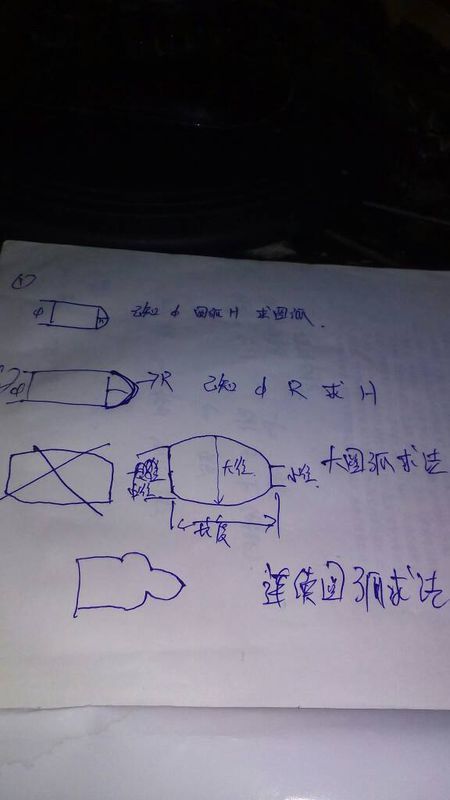 ①
φ H 已知 φ 圆弧 H 求圆弧.
φ R 已知 φ R 求 H
大径 小径 大圆弧求法
长度
连续圆弧求法